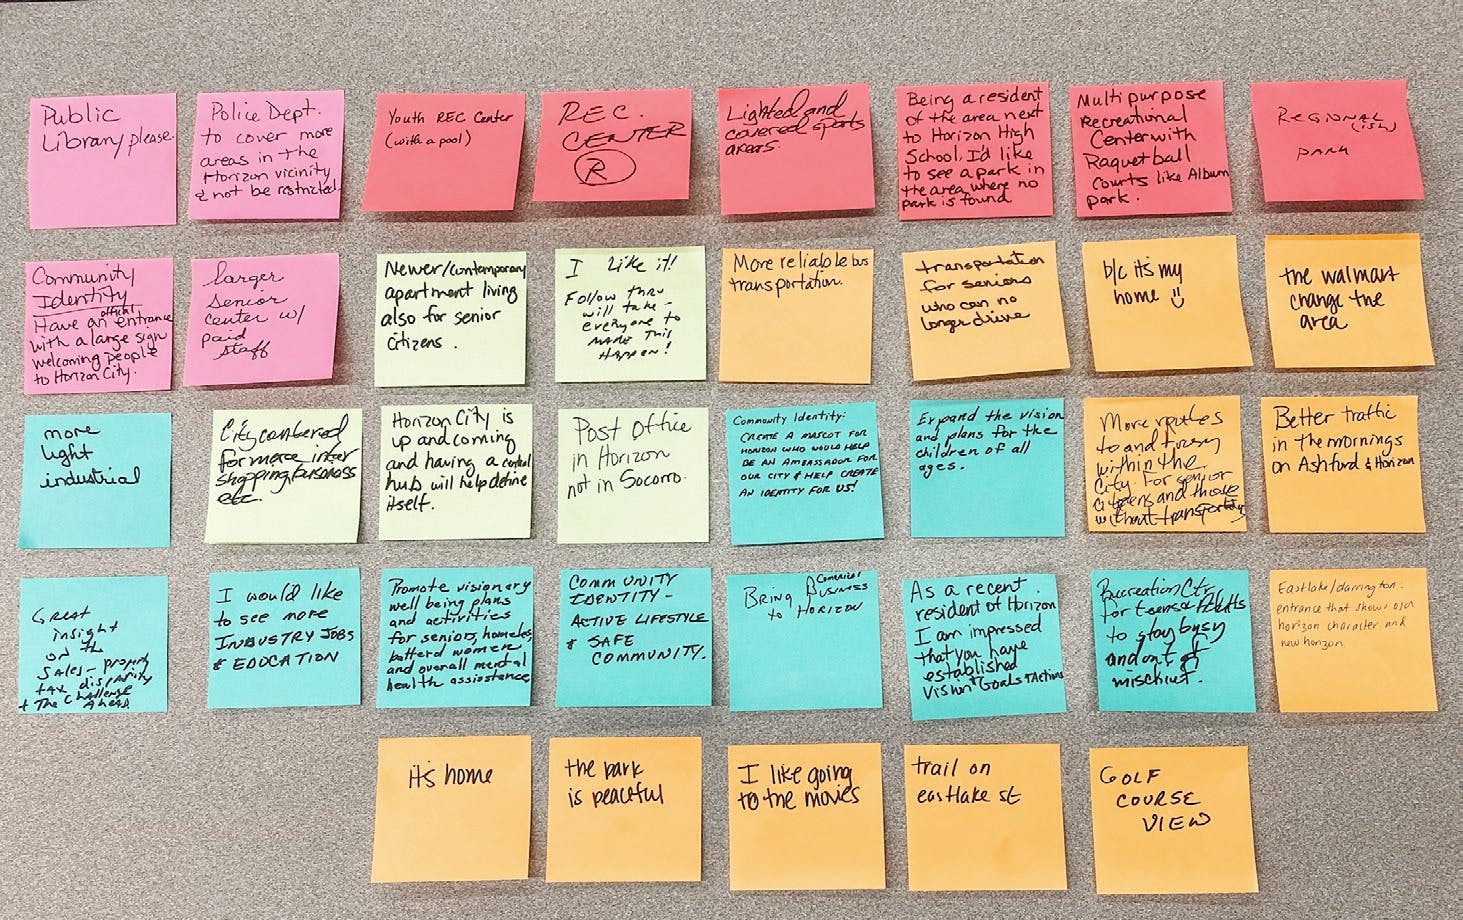 Public
Library please.
Police Dept.
to cover more
areas in the
Horizon vicinity
& not be restricted.
Youth REC Center
(with a pool)
REC.
CENTER
R
Lighted and
covered sports
areas.
Being a resident
of the area next
to Horizon High
School, I'd like
to see a park in
the area where no
park is found
Multipurpose
Recreational
Center with
Raquetball
courts like Album
park.
REGIONAL
(ish)
PARK
Community
Identity
official
Have an entrance
with a large sign
welcoming people
to Horizon City.
larger
senior
center w/
paid
staff
Newer/contemporary
apartment living
also for senior
citizens.
I Like it!
Follow thru
will take -
everyone to
MAKE This
Happen!
More reliable bus
transportation.
transportation
for seniors
who can no
longer drive
b/c it's my
home
the walmart
change the
area
more
light
industrial
City centered
for more inter
shopping, business
etc.
Horizon City is
up and coming
and having a central
hub will help define
itself.
Post Office
in Horizon
not in Socorro.
Community Identity:
CREATE A MASCOT FOR
HORIZON WHO WOULD HELP
BE AN AMBASSADOR FOR
OUR CITY & HELP CREATE
AN IDENTITY FOR US!
Expand the vision
and plans for the
children of all
ages.
More routes
to and
within the
City. For senior
citizens and those
without
Better traffic
in the mornings
on Ashford & Horizon
Great
insight
on the
sales - property
tax disparity
+ The Challenge
Ahead
I would like
to see more
INDUSTRY JOBS
& EDUCATION
Promote visionary
well being plans
and activities
for seniors, homeless,
batterd women
and overall mental
health assistance
COMMUNITY
IDENTITY -
ACTIVE LIFESTYLE
& SAFE
COMMUNITY.
BRING BUSINESS
to HORIZON
As a recent
resident of Horizon
I am impressed
that you have
established
Vision Goals & Actions
Recreation Ctr
for teens &
to stay busy
and out of
mischief.
Eastlake/darrington:
entrance that shows old
horizon character and
new horizon.
it's home
the park
is peaceful
I like going
to the movies
trail on
eastlake st
GOLF
COURSE
VIEW